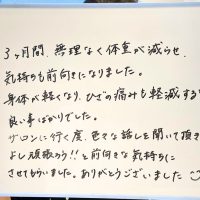 3ヶ月間、無理なく体重が減らせ、
気持ちも前向きになりました。
身体が軽くなり、ひざの痛みも軽減する
良い事ばかりでした。
サロンに行く度、色々な話しを聞いて頂き
よし頑張ろう!!と前向きな気持ちに
させてもらいました。ありがとうございました